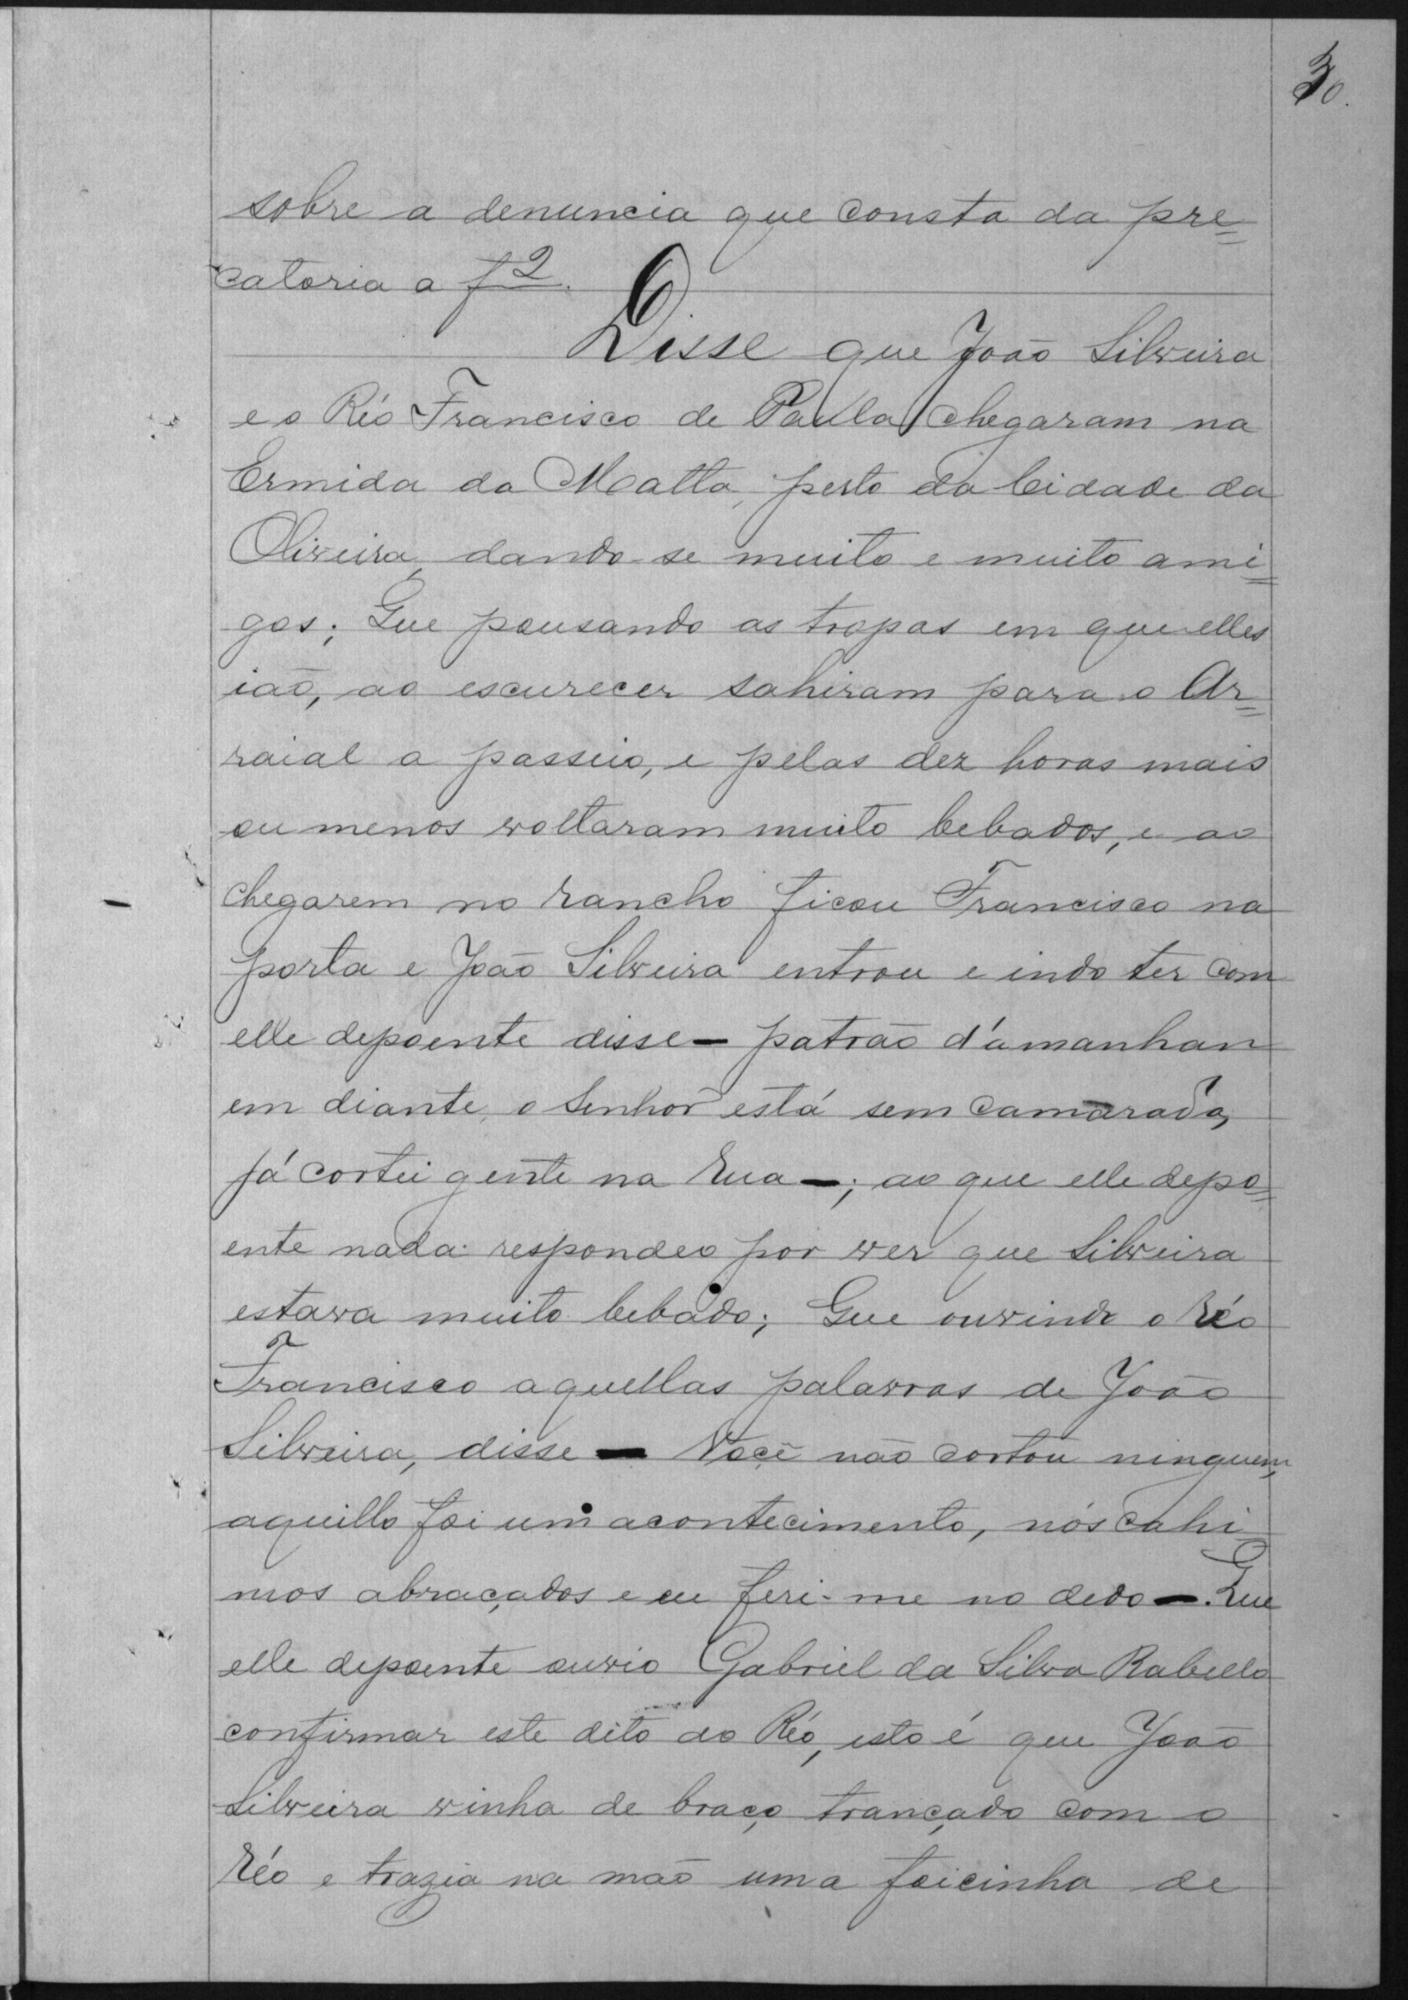 30.
sobre a denuncia que consta da pre=
catoria a f2.
Disse que João Silveira
e o Réo Francisco de Paula chegaram na
Ermida da Matta, perto da Cidade da
Oliveira, dando-se muito e muito ami=
gos; Que pousando as tropas em que elles
ião, ao escurecer sahiram para o Ar=
raial a passeio, e pelas dez horas mais
ou menos voltaram muito bebados, e ao
chegarem no rancho ficou Francisco na
porta e João Silveira entrou e indo ter com
elle depoente disse — patrão d'ámanhan
em diante o Senhor está sem camarada,
já cortei gente na rua —; ao que elle depo=
ente nada respondeo por ver que Silveira
estava muito bebado; Que ouvindo o réo
Francisco aquellas palavras de João
Silveira, disse — Você não cortou ninguem,
aquillo foi um acontecimento, nós cahi
mos abraçados e eu feri-me no dedo —. Que
elle depoente ouvio Gabriel da Silva Rabello
confirmar este dito do Réo, isto é que João
Silveira vinha de braço trançado com o
réo e trazia na mão uma foicinha de